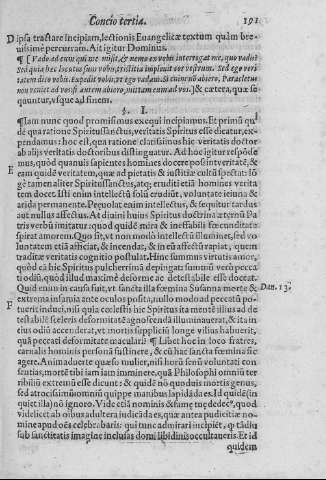 Concio tertia. 191
D ipsa tractare incipiam, lectionis Euangelicæ textum quàm bre-
uissimè percurram. Ait igitur Dominus.
¶ [Vado ad eum qui me misit, & nemo ex vobis interrogat me, quo vadis?
Sed quia hæc locutus sum vobis, tristitia impleuit cor vestrum. Sed ego veri-
tatem dico vobis. Expedit vobis, vt ego vadam. Si enim nõ abiero, Paracletus
non veniet ad vos: si autem abiero, mittam eum ad vos.] & cætera, quæ se-
quuntur, vsque ad finem.
§. I.
¶ Iam nunc quod promisimus exequi incipiamus. Et primũ quidẽ
qua ratione Spiritussanctus, veritatis Spiritus esse dicatur, ex-
pendamus: hoc est, qua ratione clarissimus hic veritatis doctor
ab alijs veritatis doctoribus distinguatur. Ad hoc igitur respõde-
mus, quòd quanuis sapientes homines docere possint veritatẽ, &
E eam quidẽ veritatem, quæ ad pietatis & iustitiæ cultũ spectat: lõ-
gè tamen aliter Spiritussanctus, atq; eruditi etiã homines verita
tem docet. Isti enim intellectũ solũ erudiũt, voluntate ieiuna &
arida permanente. Præuolat enim intellectus, & sequitur tardus
aut nullus affectus. At diuini huius Spiritus doctrina æternũ Pa
tris verbũ imitatur: quod quidẽ mira & ineffabili fœcunditate
spirat amorem. Quo fit, vt non modò intellectũ illuminet, sed vo
luntatem etiã afficiat, & incendat, & in eũ affectũ rapiat, quem
traditæ veritatis cognitio postulat. Hinc summus virtutis amor,
quòd eã hic Spiritus pulcherrimã depingat: summũ verò pecca
ti odiũ, quòd illud maximè deforme ac detestabile esse doceat.
Quid enim in causa fuit, vt sancta illa fœmina Susanna morte & Dan. 13.
F extrema infamia ante oculos posita, nullo modo ad peccatũ po-
tuerit induci, nisi quia cœlestis hic Spiritus ita mentẽ illius ad de
testabilẽ sceleris deformitatẽ agnoscendã illuminauerat, & ita in
eius odiũ accenderat, vt mortis suppliciũ longe vilius habuerit,
quã peccati deformitate macularis ¶ Libet hoc in loco fratres,
carnalis hominis personã sustinere, & cũ hac sancta fœmina sic
agere. An im aduerte quæso mulier, nisi horũ senũ voluntati con
sentias, mortẽ tibi iam iam imminere, quã Philosophi omniũ ter
ribiliũ extremũ esse dicunt: & quidẽ nõ quoduis mortis genus,
sed atrocissimũ omniũ quippe manibus lapidãda es. Id quidẽ (in
quiet illa) nõ ignoro. Vide etiã nominis & famę tuę dedec⁹, quod
videlicet ab oibus adultera iudicãda es, quæ antea pudicitiæ no-
mine apud oẽs celebrabaris: qui nunc admirari incipiẽt, q tãdiu
sub sanctitatis imagine inclusas domi libidinis occultaueris. Et id
quidem